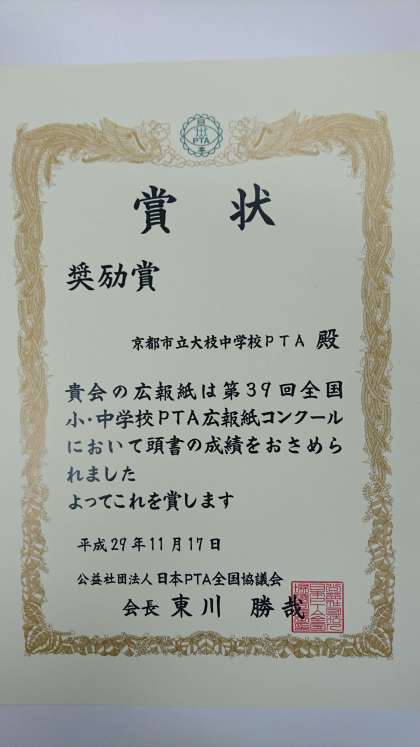 日本PTA
賞状
奨励賞
京都市立大枝中学校PTA 殿
貴会の広報紙は第39回全国
小・中学校PTA広報紙コンクール
において頭書の成績をおさめら
れました
よってこれを賞します
平成29年11月17日
公益社団法人 日本PTA全国協議会
会長 東川 勝哉